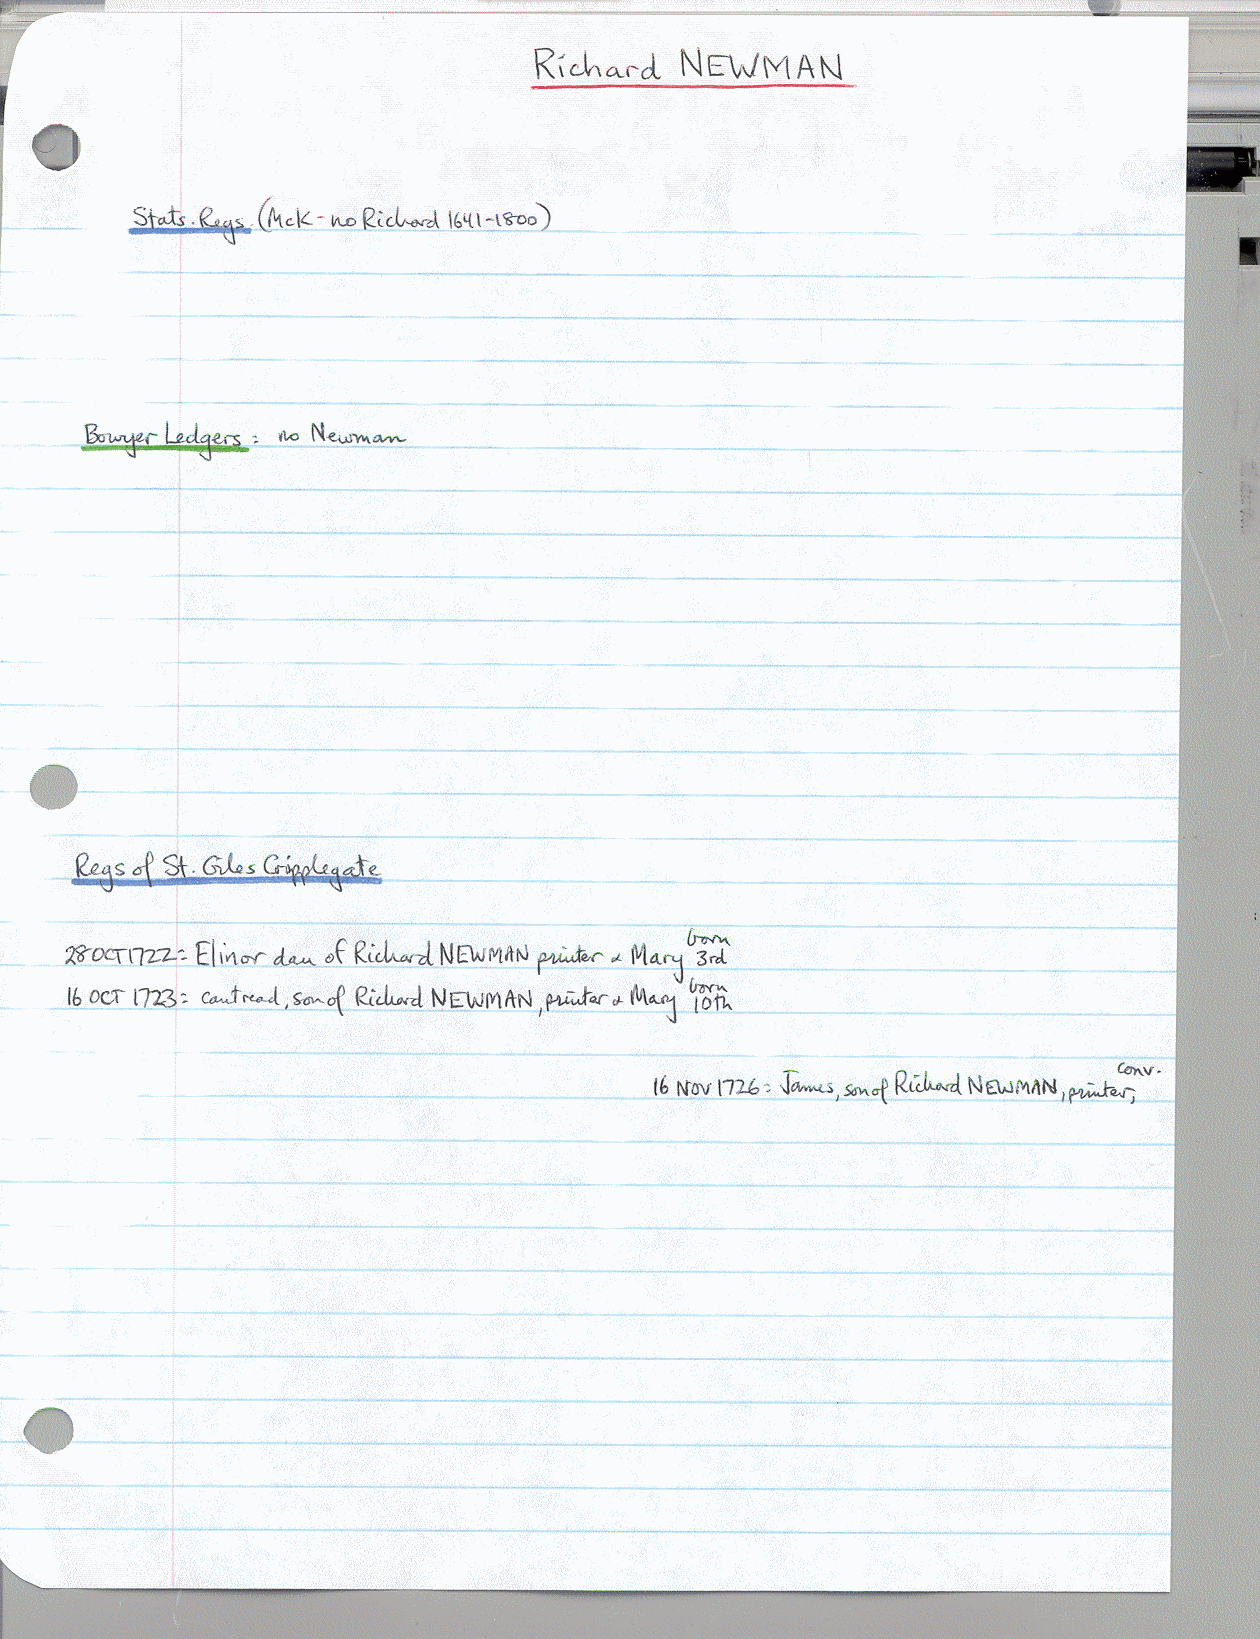 Richard NEWMAN
Stats. Regs. (McK - no Richard 1641-1800)
Bowyer Ledgers: no Newman
Regs of St. Giles Cripplegate
28 OCT 1722: Elinor dau of Richard NEWMAN printer & Mary born 3rd
16 OCT 1723: cantread, son of Richard NEWMAN, printer & Mary born 10th
16 NOV 1726: James, son of Richard NEWMAN, printer, conv.